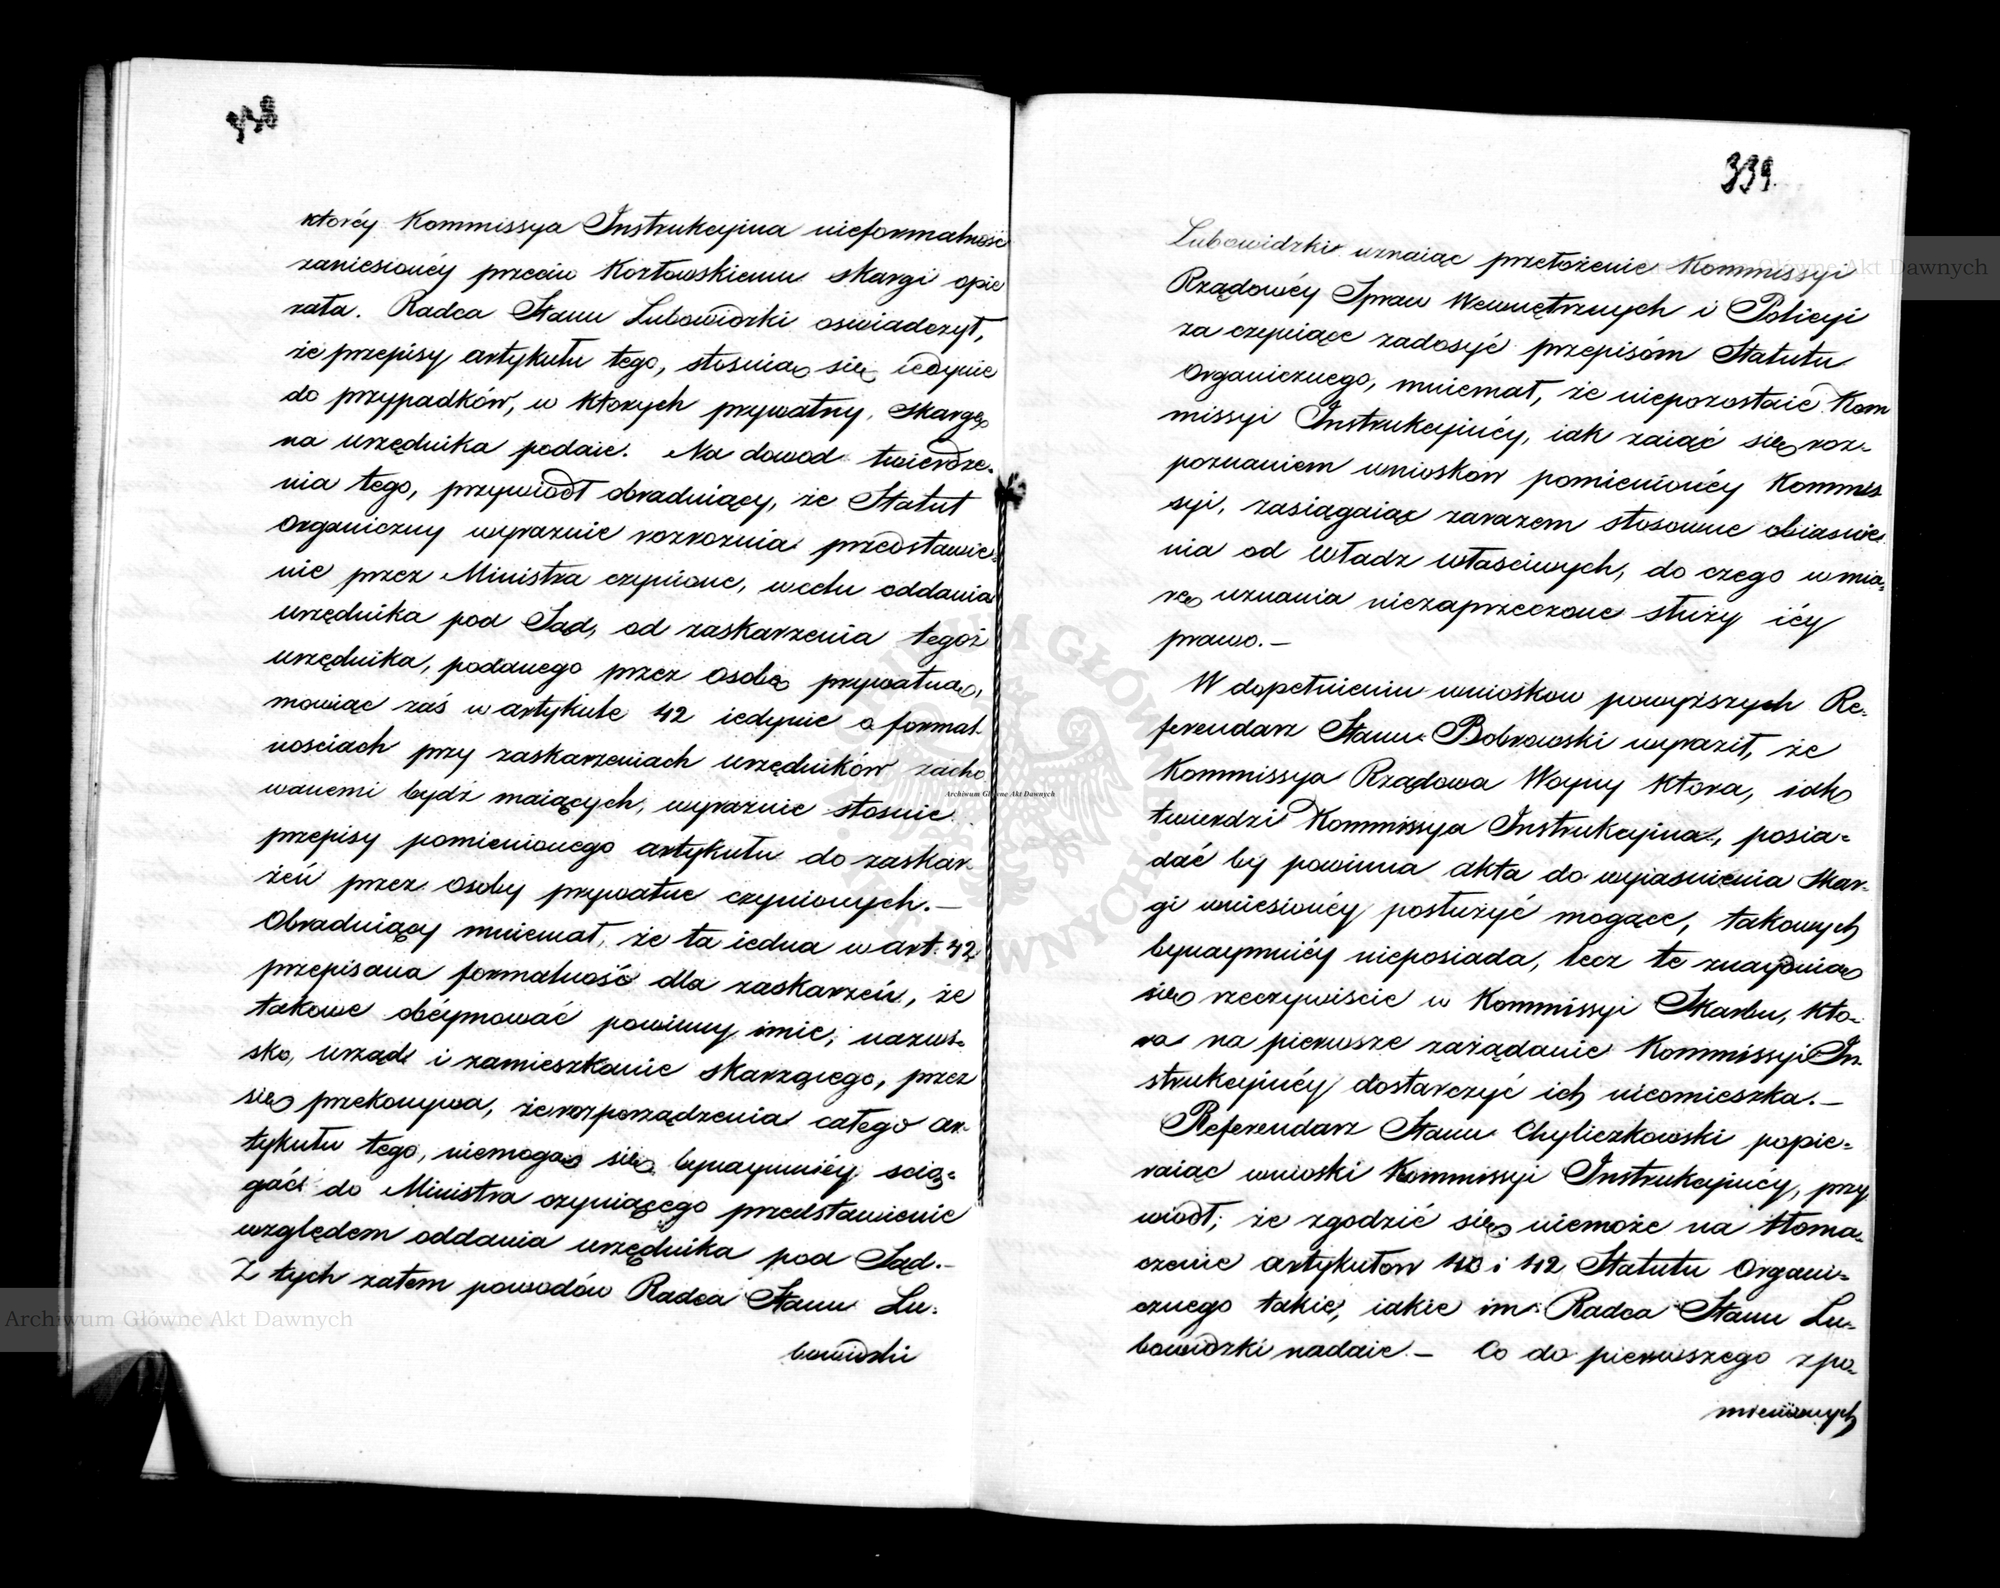 338
którey Kommissya Instrukcyina nieformalność
zaniesionéy przeciw Kozłowskiemu skargi opie
rała. Radca Stanu Lubowidzki oświadczył,
że przepisy artykułu tego, stosuią się iedynie
do przypadków, w których prywatny, skargę
na urzędnika podaie. Na dowod twierdze-
nia tego, przywiódł obraduiący, że Statut
Organiczny wyraznie rozroznia przedstawie-
nie przez Ministra czynione, w celu oddania
urzędnika pod Sąd, od zaskarzenia tegoż
urzędnika, podanego przez Osobę prywatną,
mowiąc zaś w artykule 42 iedynie o formal-
nosciach przy zaskarzeniach urzędników zacho
wanemi bydź maiących, wyraźnie stosuie
przepisy pomienionego artykułu do zaskar-
żeń przez Osoby prywatne czynionych.—
Obraduiący mniemał, że ta iedna w art: 42
przepisana formalność dla zaskarzeń, że
takowe obéymować powinny imie, nazwi-
sko, urząd i zamieszkanie skarzącego, przez
się przekonywa, że rozporządzenia całego ar-
tykułu tego, niemogą się bynaymniéy scią-
gać do Ministra czyniącego przedstawienie
względem oddania urzędnika pod Sąd.—
Z tych zatem powodów Radca Stanu Lu-
bowidzki
339
Lubowidzki uznaiąc przełożenie Kommissyi
Rządowéy Spraw Wewnętrznych i Policyi
za czyniące zadosyć przepisóm Statutu
Organicznego, mniemał, że niepozostaie Kom
missyi Instrukcyinéy, iak zaiąć się roz-
poznaniem wnioskow pomienionéy Kommis
syi, zasiągaiąc zarazem stosowne obiasnie-
nia od Władz właściwych, do czego w mia-
rę uznania niezaprzeczone służy iéy
prawo.—
W dopełnieniu wnioskow powyższych Re-
ferendarz Stanu Bobrowski wyraził, że
Kommissya Rządowa Woyny która, iak
twierdzi Kommissya Instrukcyina, posia-
dać by powinna akta do wyiasnienia skar-
gi wniesionéy posłużyć mogące, takowych
bynaymniéy nieposiada, lecz te znayduią
się rzeczywiscie w Kommissyi Skarbu, któ-
ra na pierwsze zażądanie Kommissyi In-
strukcyinéy dostarczyć ich nieomieszka.—
Referendarz Stanu Chyliczkowski popie-
raiąc wnioski Kommissyi Instrukcyinéy, przy
wiodł, że zgodzić się niemoże na tłoma-
czenie artykułow 40 i 42 Statutu Organi-
cznego takie, iakie im Radca Stanu Lu-
bowidzki nadaie.— Co do pierwszego z po-
mienionych
Archiwum Główne Akt Dawnych
Archiwum Główne Akt Dawnych
Archiwum Główne Akt Dawnych